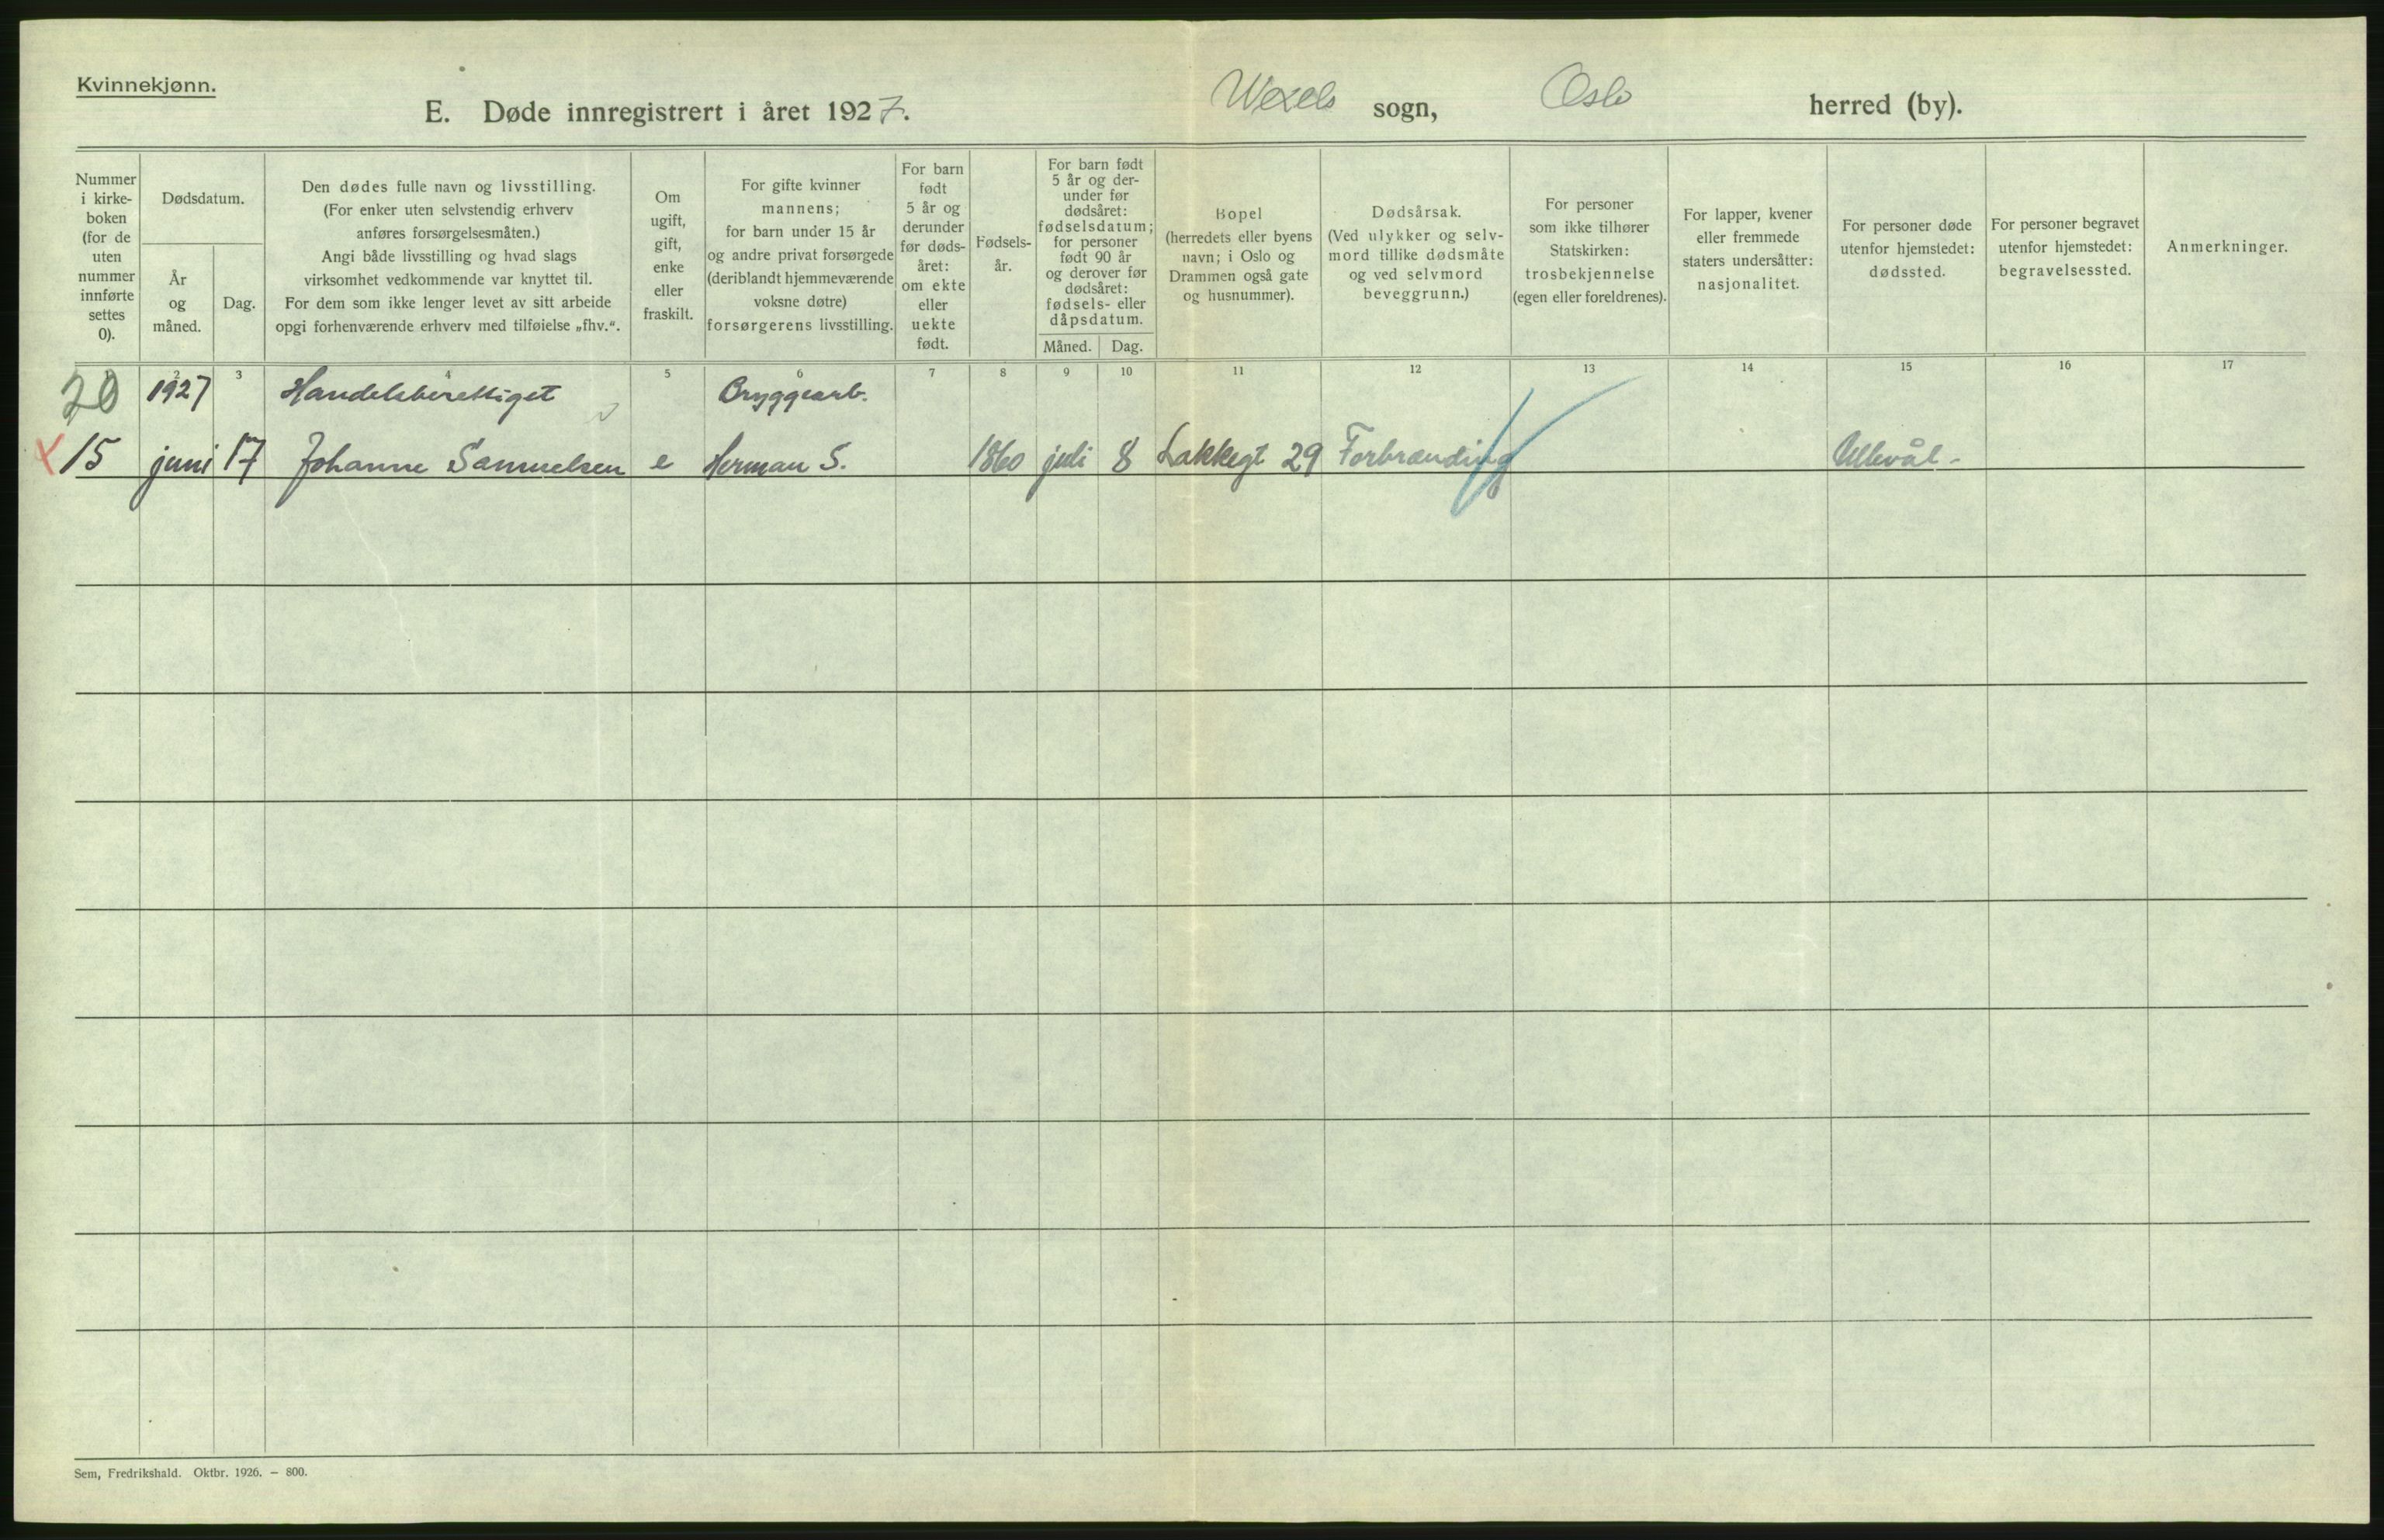 Kvinnekjønn.
E. Døde innregistrert i året 1927.
Wexels sogn,
Oslo herred (by).
Nummer
i kirke-
boken
(for de
uten
nummer
innførte
settes
0).
Dødsdatum.
År
og
måned.
Dag.
Den dødes fulle navn og livsstilling.
(For enker uten selvstendig erhverv
anføres forsørgelsesmåten.)
Angi både livsstilling og hvad slags
virksomhet vedkommende var knyttet til.
For dem som ikke lenger levet av sitt arbeide
opgi forhenværende erhverv med tilføielse „fhv.“.
Om
ugift,
gift,
enke
eller
fraskilt.
For gifte kvinner
mannens;
for barn under 15 år
og andre privat forsørgede
(deriblandt hjemmeværende
voksne døtre)
forsørgerens livsstilling.
For barn
født
5 år og
derunder
før døds-
året:
om ekte
eller
uekte
født.
Fødsels-
år.
For barn født
5 år og der-
under før
dødsåret:
fødselsdatum;
for personer
født 90 år
og derover før
dødsåret:
fødsels- eller
dåpsdatum.
Måned. Dag.
Bopel
(herredets eller byens
navn; i Oslo og
Drammen også gate
og husnummer).
Dødsårsak.
(Ved ulykker og selv-
mord tillike dødsmåte
og ved selvmord
beveggrunn.)
For personer
som ikke tilhører
Statskirken:
trosbekjennelse
(egen eller foreldrenes).
For lapper, kvener
eller fremmede
staters undersåtter:
nasjonalitet.
For personer døde
utenfor hjemstedet:
dødssted.
For personer begravet
utenfor hjemstedet:
begravelsessted.
Anmerkninger.
2 3 4 5 6 7 8 9 10 11 12 13 14 15 16 17
20 1927 Handelsberettiget Bryggearb.
15 juni 17 Johanne Samuelsen e Herman S. 1860 juli 8 Lakkegt 29 Forbrænding Ullevål -
Sem, Fredrikshald. Oktbr. 1926. — 800.